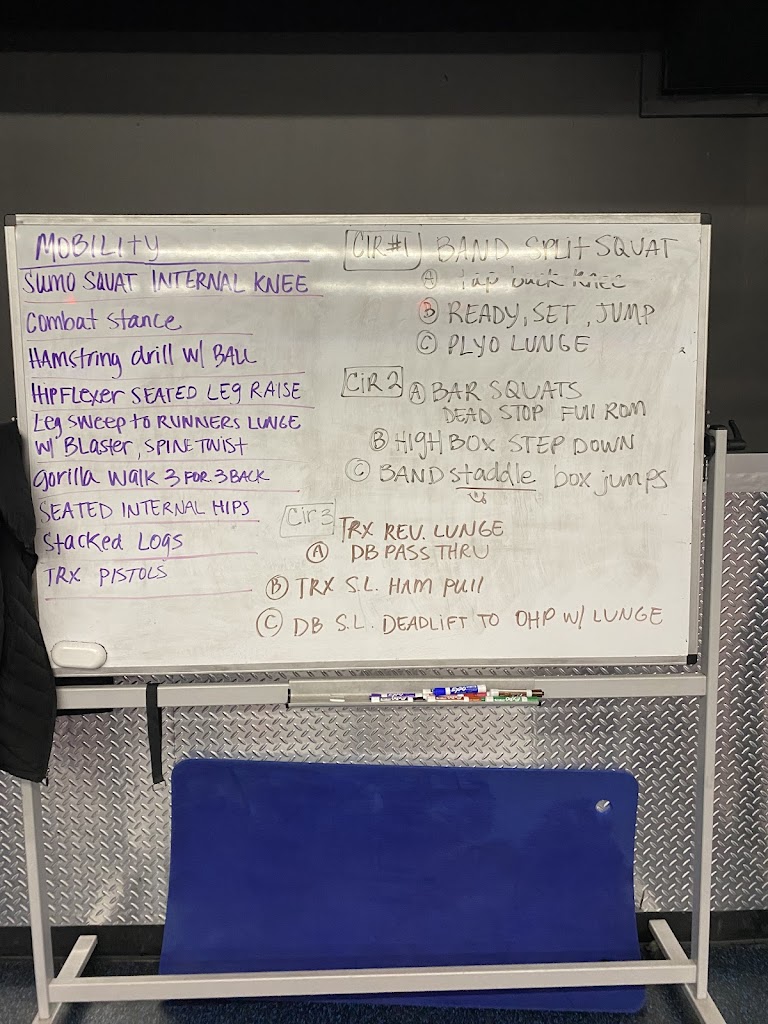 MOBILITY
SUMO SQUAT INTERNAL KNEE
Combat stance
HAMString drill w/ BALL
HIPFlexer SEATED LEG RAISE
Leg SWEEP to RUNNERS LUNGE
w/ Blaster, SPINE TWIST
Gorilla Walk 3 FOR 3 BACK
SEATED INTERNAL HIPS
Stacked LOGS
TRX PISTOLS
CIR#1 BAND SPLIT SQUAT
A tap back knee
B READY, SET, JUMP
C PLYO LUNGE
CIR 2 A BAR SQUATS
DEAD STOP FUll ROM
B HIGH BOX STEP DOWN
C BAND staddle box jumps
Cir 3 TRX REV. LUNGE
A DB PASS THRU
B TRX S.L. HAM PUll
C DB S.L. DEADLIFT TO OHP W/ LUNGE
EXPO